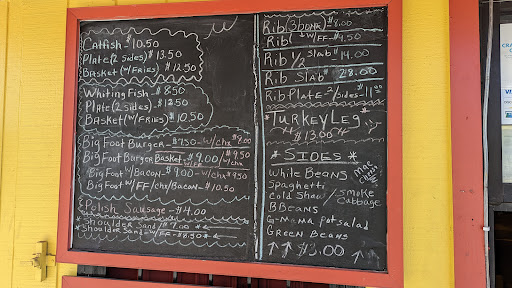 Catfish - $10.50
Plate (2 sides) $13.50
Basket (w/Fries) $12.50
Whiting Fish - $8.50
Plate (2 sides) - $12.50
Basket (w/Fries) $10.50
Big Foot Burger - $7.50 - w/chz $8.00
Big Foot Burger Basket - $9.00 / $9.50
w/FF w/chz
Big Foot w/Bacon - $9.00 - w/chz $9.50
Big Foot w/FF/chz/Bacon - $10.50
Polish Sausage - $4.00
*Shoulder Sand / $7.00 *
*Shoulder Sand - w/FF - $8.50 *
Rib (3 bone) - $8.00
Rib w/FF -
Rib 1/2 Slab $14.00
Rib Slab $28.00
Rib Plate - 2/sides - $11
*Turkey Leg *
$13.00
* Sides *
While Beans
Mac
Spaghetti
Cold Shaul / Smoke
Cabbage
BBeans
G-mama Pot salad
Green Beans
$3.00